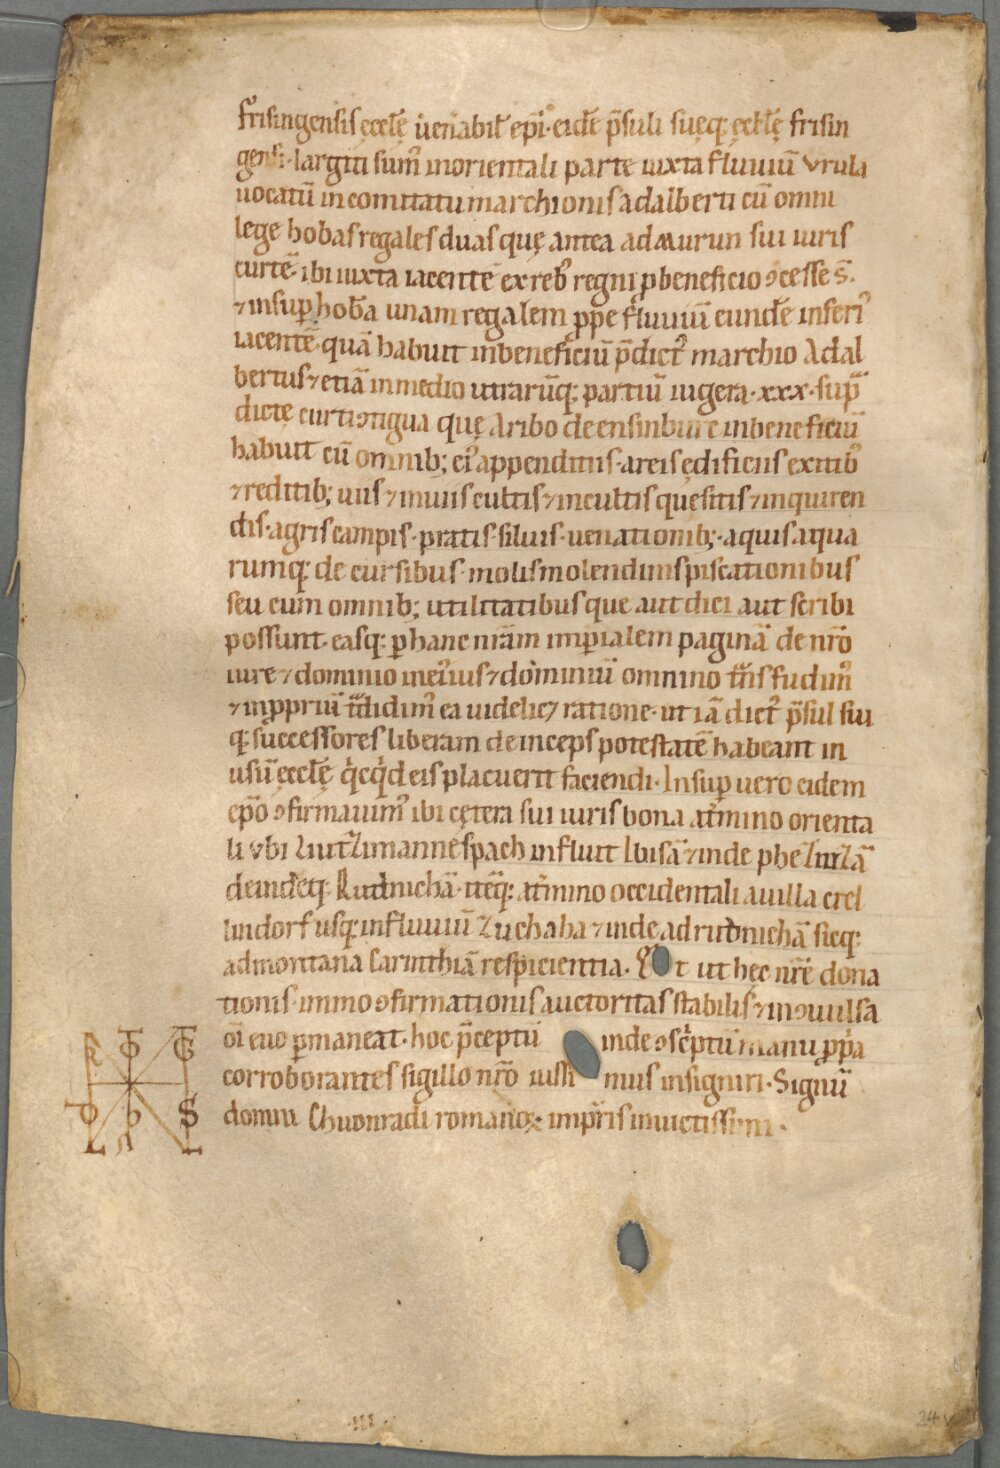 frisingensis ęccłę uenabił ep̄i · eidē p̄suli suęq; ęccłę frisin
gensi · largiti sumꝰ in orientali parte iuxta fluuiū vrula
uocatū in comitatu marchionis adalberti cū omni
lege hobas regales duas quę antea ad aurun sui iuris
curtē · ibi iuxta iacentē ex rebꝰ regni ꝑ beneficio ꝯcesse s̄ ·
⁊ insuꝑ hobā unam regalem ꝓpe fluuiū eundē inferiꝰ
iacentē · quā habuit in beneficiū p̄dictꝰ marchio Adal
bertus ⁊ etiā in medio utrarūq; partiū iugera · xxx · supͣ
dictę curti ꝯtigua quę Aribo de ensinbure in beneficiū
habuit cū omnib; eiꝰ appenditiis · areis ędificiis exitibꝰ
⁊ reditib; uiis ⁊ inuiis cultis ⁊ incultis quęsitis ⁊ inquiren
dis · agris campis · pratis · siluis · uenationib; · aquis aqua
rumq; de cursibus · molis molendinis piscationibus
seu cum omnib; utilitatibus que aut dici aut scribi
possunt · easq; ꝑ hanc nr̄am imꝑialem paginā de nr̄o
iure ⁊ dominio in eiꝰ ius ⁊ dominiū omnino tͣnsfudimꝰ
⁊ in ꝓpriū tͣdidimꝰ ea uidelicꝫ ratione · ut iā dictꝰ p̄sul sui
q; successores liberam deinceps potestatē habeant in
usū ęccłę qͥcqͥd eis placuerit faciendi · Insuꝑ uero eidem
ep̄o ꝯfirmauimꝰ ibi cętera sui iuris bona a tͥmino orienta
li vbi liutzimannespach influit lbisā ⁊ inde ꝑ he lurzā
deindeq; Rudnichā · itēq; a tͥmino occidentali a uilla crel
lindorf usq; in fluuiū zuchaha ⁊ inde ad rudnichā sicq;
ad montana Carinthiā respicientia · Et ut hęc nr̄e dona
tionis · immo ꝯfirmationis auctoritas stabilis ⁊ inꝯuulsa
oī euo ꝑmaneat · hoc p̄ceptū inde ꝯscͥptū manu ꝓpͥa
corroborantes sigillo nr̄o iussi mus insigniri · Signū
domni Chuonradi romanoꝝ · imꝑ̄ris inuictissimi ·
R T E
O S
L
III
24 v